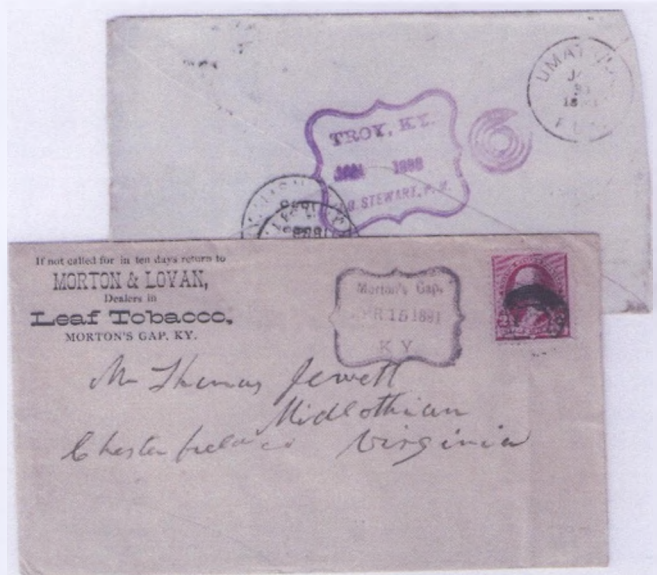 TROY, KY.
JAN 1898
STEWART, P. M.
If not called for in ten days return to
MORTON & LOVAN,
Dealers in
Leaf Tobacco,
MORTON'S GAP, KY.
Morton's Gap,
APR 15 1891
KY
Mr Thomas Jewett
Midlothian
Chesterfield Co Virginia